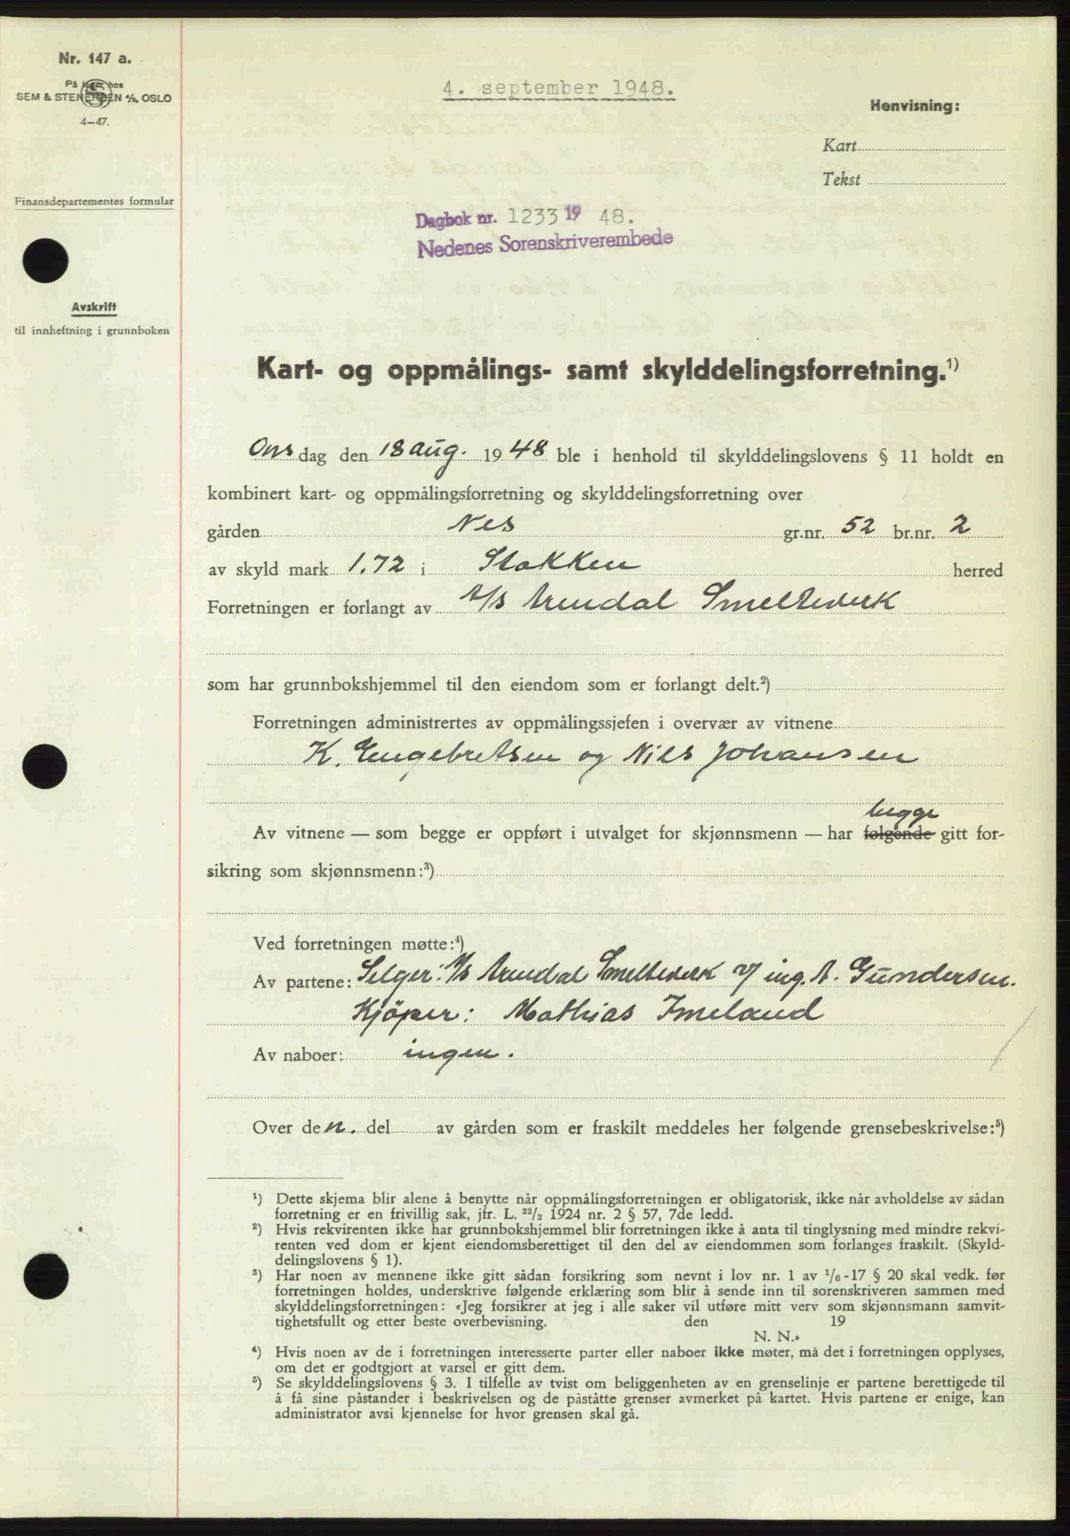 Nr. 147 a.
På lager hos
SEM & STENERSEN A/S, OSLO
4-47.
Finansdepartementes formular
Avskrift
til innheftning i grunnboken
4. september 1948.
Henvisning:
Kart
Tekst
Dagbok nr. 1233 19 48.
Nedenes Sorenskriverembede
Kart- og oppmålings- samt skylddelingsforretning.¹)
Onsdag den 18 aug. 1948 ble i henhold til skylddelingslovens § 11 holdt en
kombinert kart- og oppmålingsforretning og skylddelingsforretning over
gården Nes gr.nr. 52 br.nr. 2
av skyld mark 1.72 i Stokken herred
Forretningen er forlangt av A/S Arendal Smelteverk
som har grunnbokshjemmel til den eiendom som er forlangt delt.²)
Forretningen administrertes av oppmålingssjefen i overvær av vitnene
K. Engebretsen og Nils Johansen
begge
Av vitnene — som begge er oppført i utvalget for skjønnsmenn — har følgende gitt for-
sikring som skjønnsmenn:³)
Ved forretningen møtte:⁴)
Av partene: Selger: A/S Arendal Smelteverk v/ ing. A. Gundersen.
Kjöper: Mathias Imeland
Av naboer: ingen.
Over den. del av gården som er fraskilt meddeles her følgende grensebeskrivelse:⁵)
¹) Dette skjema blir alene å benytte når oppmålingsforretningen er obligatorisk, ikke når avholdelse av sådan
forretning er en frivillig sak, jfr. L. ²²/₂ 1924 nr. 2 § 57, 7de ledd.
²) Hvis rekvirenten ikke har grunnbokshjemmel blir forretningen ikke å anta til tinglysning med mindre rekvi-
renten ved dom er kjent eiendomsberettiget til den del av eiendommen som forlanges fraskilt. (Skyld-
delingslovens § 1).
³) Har noen av mennene ikke gitt sådan forsikring som nevnt i lov nr. 1 av ¹/₆-17 § 20 skal vedk. før
forretningen holdes, underskrive følgende erklæring som blir å sende inn til sorenskriveren sammen med
skylddelingsforretningen: «Jeg forsikrer at jeg i alle saker vil utføre mitt verv som skjønnsmann samvit-
tighetsfullt og etter beste overbevisning. den 19
N. N.»
⁴) Hvis noen av de i forretningen interesserte parter eller naboer ikke møter, må det i forretningen opplyses,
om det er godtgjort at varsel er gitt dem.
⁵) Se skylddelingslovens § 3. I tilfelle av tvist om beliggenheten av en grenselinje er partene berettigede til
å få sine påstander i beskrivelsen og de påståtte grenser avmerket på kartet. Hvis partene er enige, kan
administrator avsi kjennelse for hvor grensen skal gå.